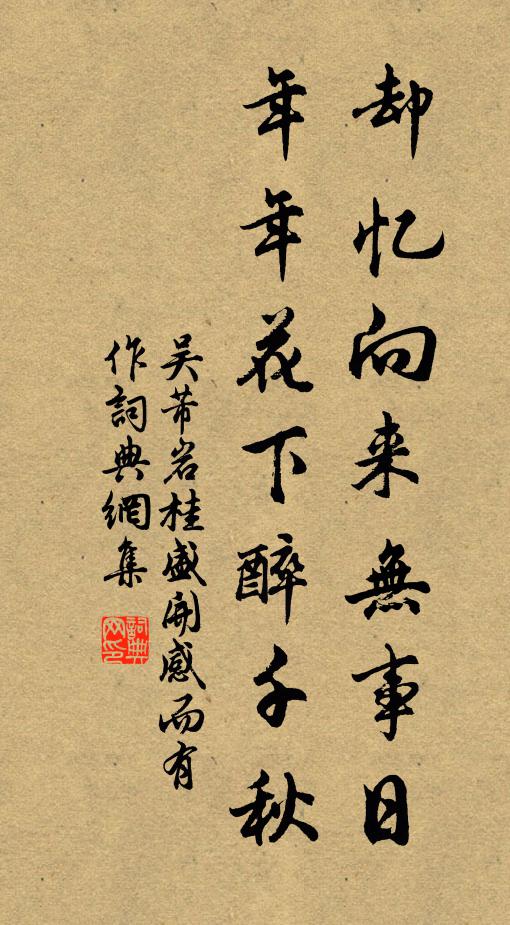 却忆向来無事日
年年花下醉千秋
吴芾岩桂盛開感而有
作詞典網集
詞典
网印